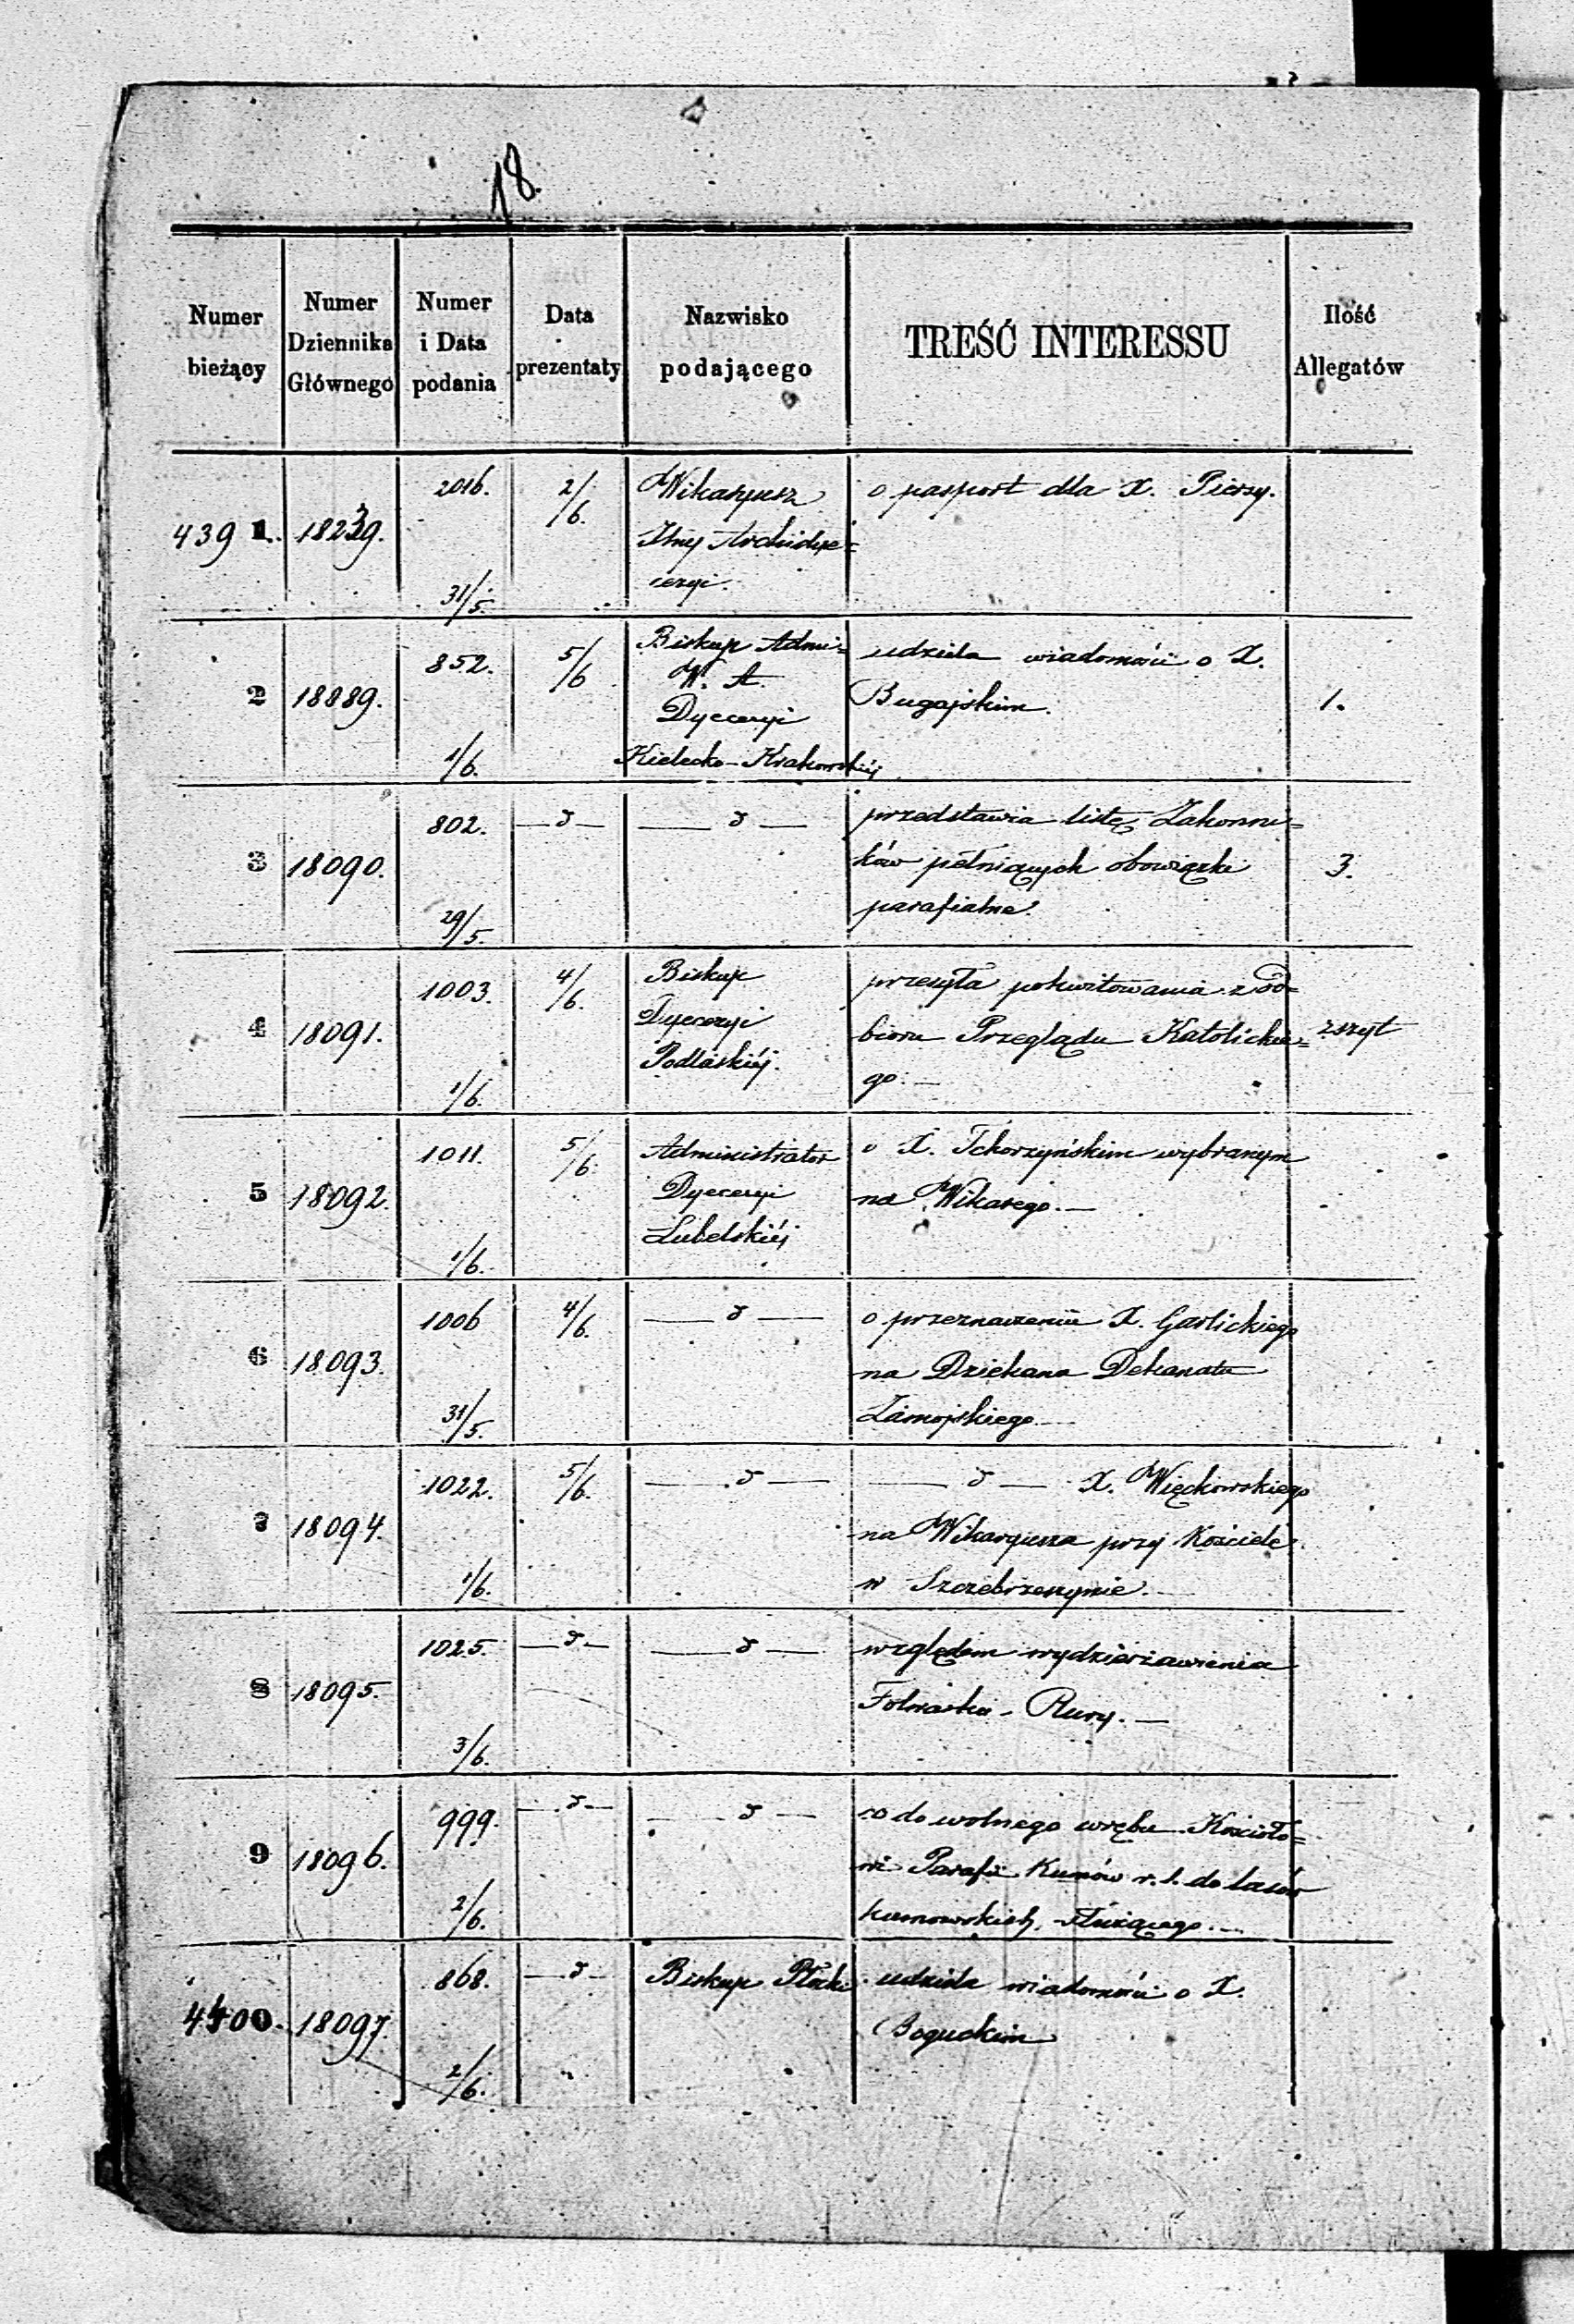 18.
Numer bieżący | Numer Dziennika Głównego | Numer i Data podania | Data prezentaty | Nazwisko podającego | TREŚĆ INTERESSU | Ilość Allegatów
4391. 18239. 2016. 31/5. 2/6. Wikaryusz
Archidye=
cezyi.
o pasport dla X.
2 18889. 852. 1/6. 5/6 Biskup Admi=
W. A.
Dyecezyi
Kielecko-Krakowskiéj
udziela wiadomości o X.
Bugajskim.
1.
3 18090. 802. 29/5. —d— —d—
przedstawia listę Zakonni=
ków pełniących obowiązki
parafialne.
3.
4 18091. 1003. 1/6. 4/6. Biskup
Dyecezyi
Podlaskiéj.
przesyła pokwitowania z od=
bioru Przeglądu Katolickie=
go.—
zszyt
5 18092. 1011. 1/6. 5/6. Administrator
Dyecezyi
Lubelskiéj
o X. Tchorzyńskim wybranym
na Wikarego.—
6 18093. 1006 31/5. 4/6. —d—
o przeznaczeniu X. Garlickiego
na Dziekana Dekanatu
Zamojskiego.—
7 18094. 1022. 1/6. 5/6. —d—
—d— X. Więckowskiego
na Wikaryusza przy Kościele
w Szczebrzeszynie.—
8 18095. 1025. 3/6. —d— —d—
względem wydzierżawienia
Folwarku - Rury.—
9 18096. 999. 2/6. —d— —d—
co do wolnego wrębu Kościoło=
wi Parafii Kumów r. l. do lasów
kumowskich, służącego.—
4400. 18097. 868. 2/6. —d— Biskup Płocki
udziela wiadomości o X.
Boguckim